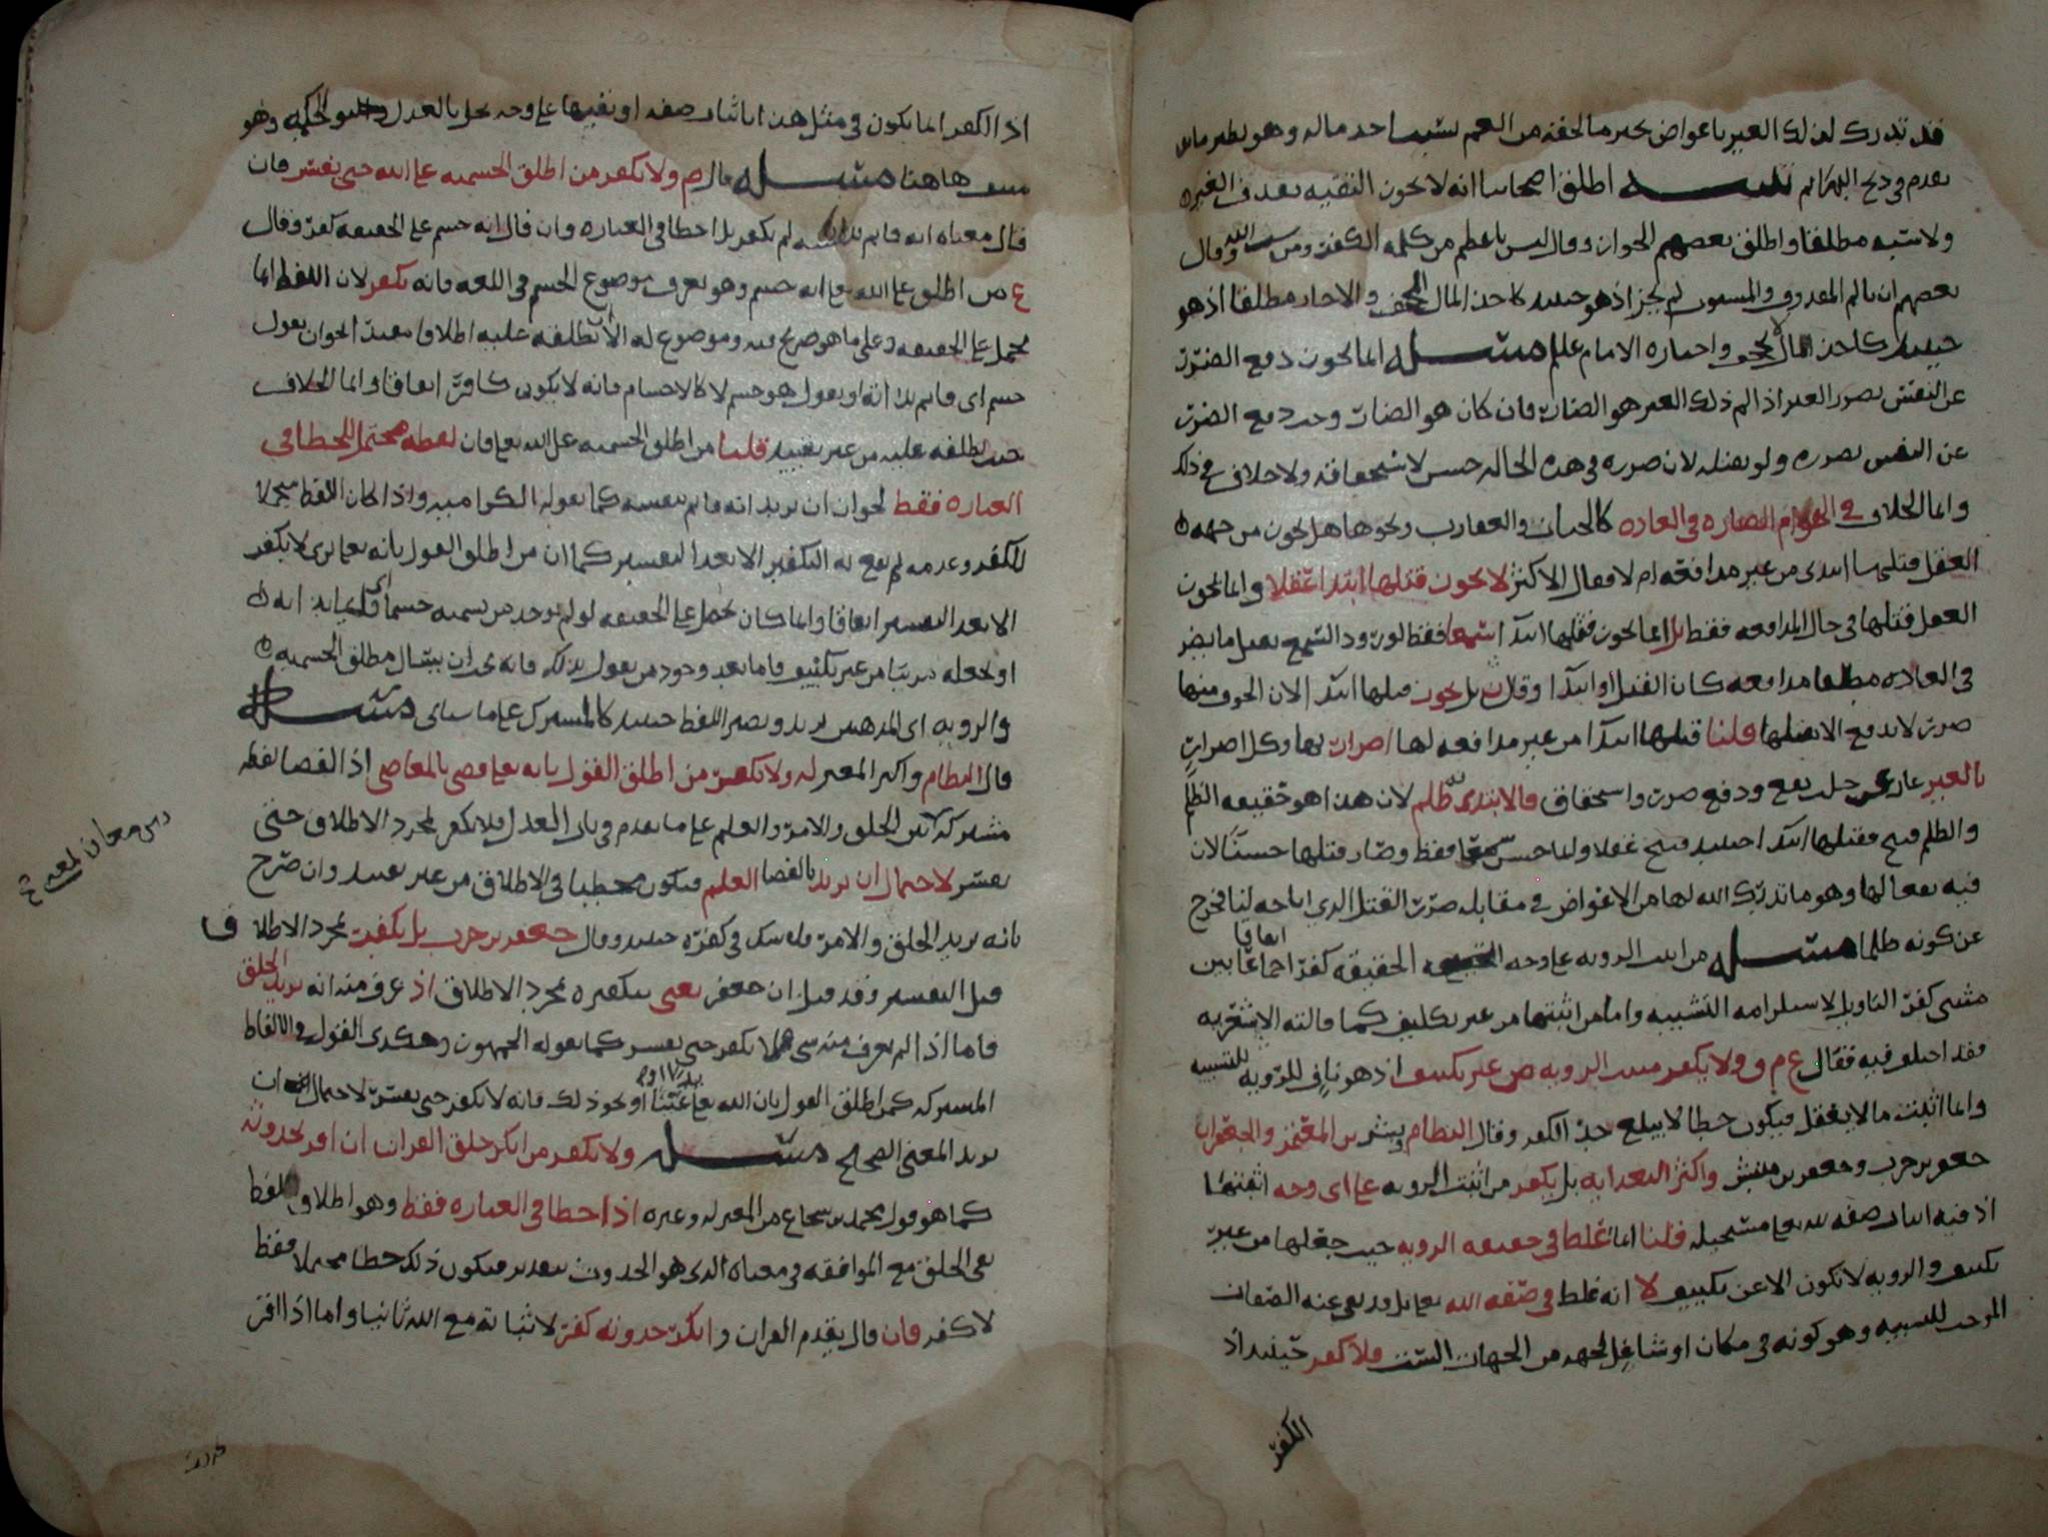 فقد تدرك لذلك الغير باعواض تجبر ما لحقه من الغم بسبب احد ماله وهو نظير ما
تقدم في ذبح البهائم اطلق اصحابنا انه لا يجوز التقيه بقذف الغير
ولا سبه مطلقا واطلق بعضهم الجواز وقال ليس باعظم من كلمه الكفر ومن سب الله وقال
بعضهم ان تالم المقذوف والمسبوب لم يجز اذ هو حينئذ كاخذ المال المجحف والا جاز مطلقا اذ هو
حينئذ كاخذ المال لا يجحف واختاره الامام علم مسئله انما يجوز دفع الضرر
عن النفس بضرر الغير اذا لم ذلك الغير هو الضار فان كان هو الضار وجب دفع الضرر
عن النفس بضرره ولو بقتله لان ضرره في هذه الحاله حسن لاستحقاقه ولا خلاف في ذلك
وانما الخلاف في الهوام الضاره في العاده كالحيات والعقارب ونحوها هل يجوز من جهه
العقل قتلها ابتدى من غير مدافعه ام لا فقال الاكثر لا يجوز قتلها ابتدا عقلا وانما يجوز
العقل قتلها في حال المدافعه فقط بل انما يجوز قتلها ابتدا سمعا فقط لورود السمع بقتل ما يضر
في العاده مطلقا مدافعه كان القتل او ابتدا وقيل بل يجوز قتلها ابتدا لان الخوف منها
ضرر لا يندفع الا بقتلها قلنا قتلها ابتدا من غير مدافعه لها اضرار بها وكل اضرار
بالغير عار عن جلب نفع ودفع ضرر واستحقاق فالابتدى به ظلم لان هذا هو حقيقه الظلم
والظلم قبيح فقتلها ابتدا حينئذ قبيح عقلا وانما حسن سمعا فقط وصار قتلها حسنا لان
فيه نفعا لها وهو ما تدرك الله لها من الاعواض في مقابله ضرر القتل الذي اباحه لنا فخرج
عن كونه ظلما مسئله من اثبت الرويه على وجه الحقيقه كفر اجماعا بين
اتفاقا
مثبتي كفر التاويل لاستلزامه التشبيه واما من اثبتها من غير تكييف كما قالته الاشعريه
فقد اختلف فيه فقال ع م و ولا يكفر مثبت الرويه من غير تكييف اذ هو ناف للرويه للتشبيه
وانما اثبت ما لا يعقل فيكون خطا لا يبلغ حد الكفر وقال النظام وبشر بن المعتمر والجعفران
جعفر بن حرب وجعفر بن مبشر واكثر البغداديه بل يكفر من اثبت الرويه على اي وجه اثبتها
اذ فيه اثبات صفه لله تعالى مستحيله قلنا انما غلط في حقيقه الرويه حيث جعلها من غير
تكييف والرويه لا تكون الا عن تكييف لا انه غلط في صفه الله تعالى بل قد نفى عنه الصفات
الموجب للتشبيه وهو كونه في مكان او شاغل لجهه من الجهات الست فلا كفر حينئذ اذ
الكفر
اذ الكفر انما يكون في مثل هذا باثبات صفه او نفيها على وجه يخل بالعدل والحكمه وهو
منتف هاهنا مسئله قال م ولا يكفر من اطلق الجسميه على الله حتى يفسر فان
قال معناه انه قايم بذاته لم يكفر بل اخطا في العباره وان قال انه جسم على الحقيقه كفر وقال
ع من اطلق على الله تعالى انه جسم وهو يعرف موضوع الجسم في اللغه فانه يكفر لان اللفظ انما
يحمل على الحقيقه وعلى ما هو صريح فيه وموضوع له الا ان يطلقه عليه اطلاقا مقيدا بان يقول
جسم اي قايم بذاته او يقول هو جسم لا كالاجسام فانه لا يكون كافرا اتفاقا وانما الخلاف
حيث يطلقه عليه من غير تقييد قلنا من اطلق الجسميه على الله تعالى فان لفظه محتمل للخطا في
العباره فقط لجواز ان يريد انه قايم بنفسه كما تقوله الكراميه واذا كان اللفظ محتملا
للكفر وعدمه لم يقع به التكفير الا بعد التفسير كما ان من اطلق القول بانه تعالى يرى لا يكفر
الا بعد التفسير اتفاقا وانما كان يحمل على الحقيقه لو لم يوجد من يسميه جسما قايما بذاته
او يجعله مرييا من غير تكييف فاما بعد وجود من يقول بذلك فانه يجب ان يسال مطلق الجسميه
والرويه اي المذهبين يريد ويصير اللفظ حينئذ كالمشترك على ما سياتي مسئله
قال النظام واكثر المعتزله ولا يكفر من اطلق القول بانه تعالى قضى بالمعاصي اذ القضا لفظه
مشتركه بين الخلق والامر والعلم على ما تقدم في باب العدل فلا يكفر بمجرد الاطلاق حتى
يفسر لاحتمال ان يريد بالقضا العلم فيكون مخطيا في الاطلاق من غير تقييد وان صرح
بانه يريد الخلق والامر فلا شك في كفره حينئذ وقال جعفر بن حرب بل يكفر بمجرد الاطلاق
قبل التفسير وقد قيل ان جعفر يعني بتكفيره بمجرد الاطلاق اذ عرف منه انه يريد الخلق
فاما اذا لم يعرف منه شي فلا يكفر حتى يفسر كما يقوله الجمهور وهكذى القول في الالفاظ
المشتركه كمن اطلق القول بان الله تعالى او نحو ذلك فانه لا يكفر حتى يفسر لاحتمال ان
يريد المعنى الصحيح مسئله ولا يكفر من انكر خلق القران ان اقر بحدوثه
كما هو قول محمد بن شجاع من المعتزله وغيره اذ اخطا في العباره فقط وهو اطلاق لفظ
نفي الخلق مع الموافقه في معناه الذي هو الحدوث بتقدير فيكون ذلك خطا محتملا فقط
لا كفر فان قال بقدم القران وانكر حدوثه كفر لاثباته مع الله ثانيا واما اذا اقر